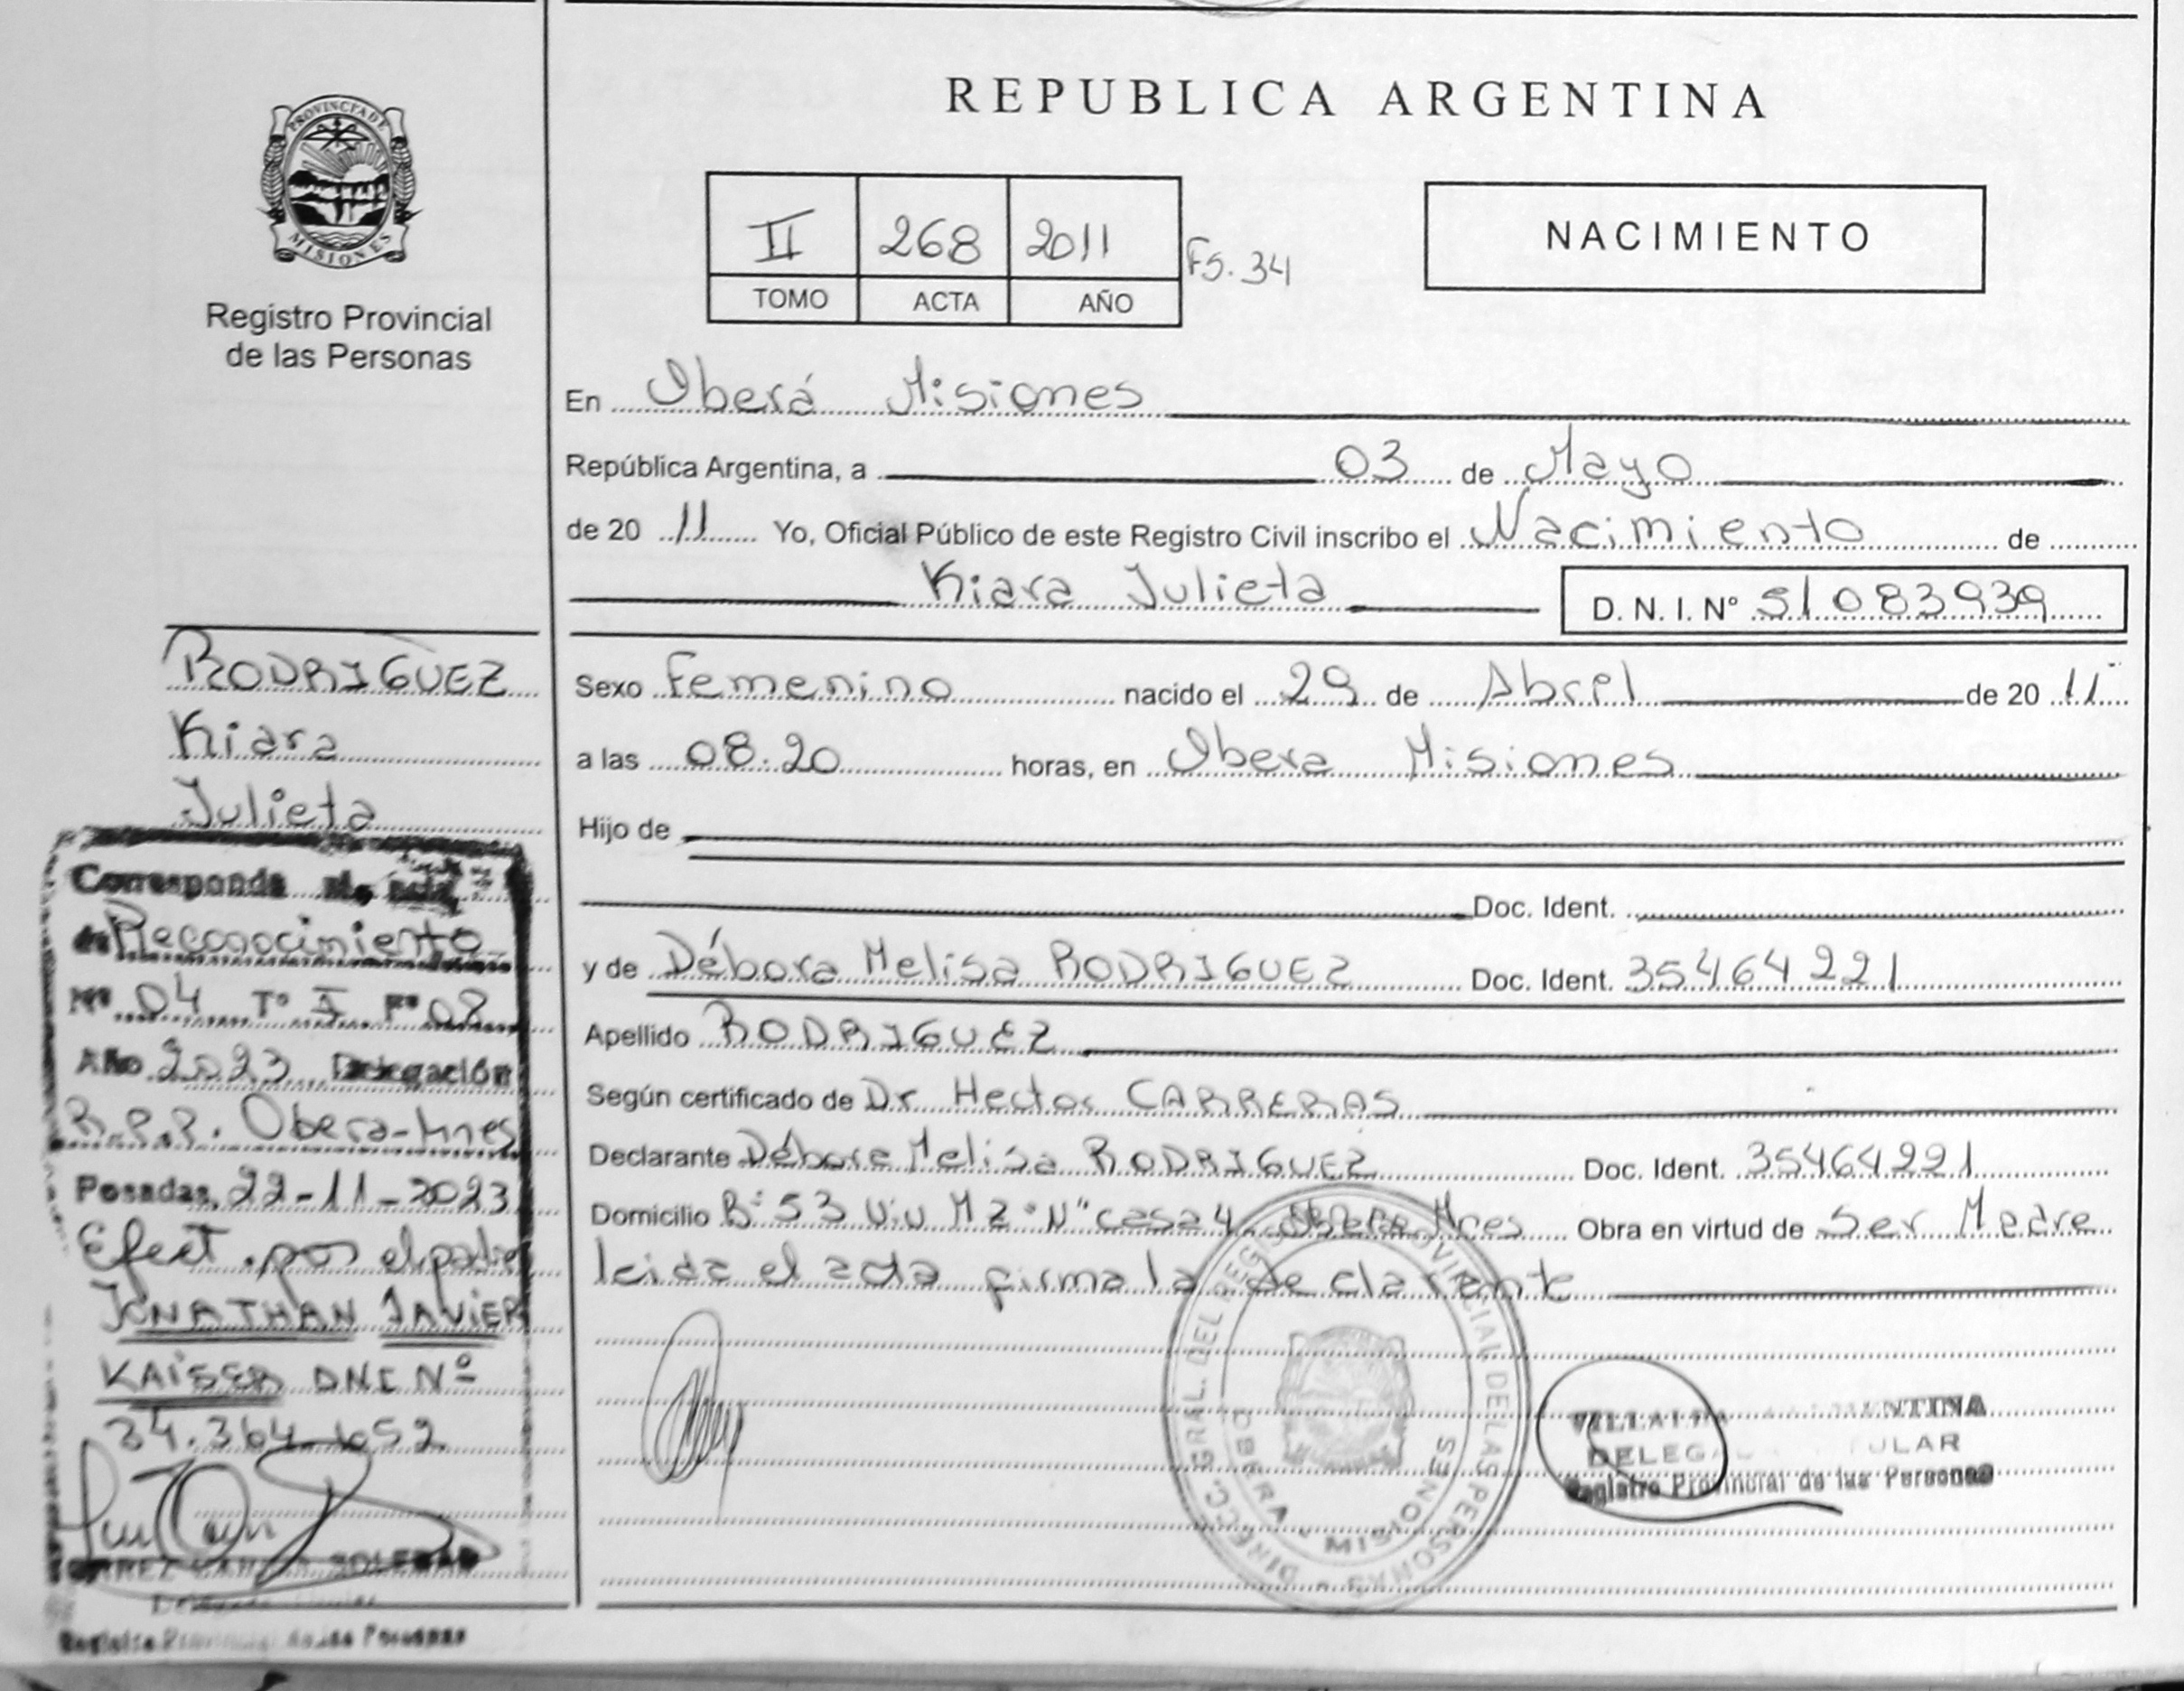 PROVINCIA DE
MISIONES
Registro Provincial
de las Personas
RODRIGUEZ
Kiara
Julieta
Corresponde al acta
de Reconocimiento
Nº 04 Tº I Fº 08
Año 2023 Delegación
R.P.P. Obera-Mnes
Posadas, 22-11-2023
Efect. por el padre
JONATHAN JAVIER
KAISER DNI Nº
34.364.652
SOLEDAD
Registro Provincial de las Personas
REPUBLICA ARGENTINA
II 268 2011 Fs. 34
TOMO ACTA AÑO
NACIMIENTO
En Oberá Misiones
República Argentina, a 03 de Mayo
de 20 11 Yo, Oficial Público de este Registro Civil inscribo el Nacimiento de
Kiara Julieta D. N. I. Nº 51083939
Sexo Femenino nacido el 29 de Abril de 20 11
a las 08.20 horas, en Obera Misiones
Hijo de
Doc. Ident.
y de Débora Melisa RODRIGUEZ Doc. Ident. 35464221
Apellido RODRIGUEZ
Según certificado de Dr Hector CARRERAS
Declarante Débora Melisa RODRIGUEZ Doc. Ident. 35464221
Domicilio Bº 53 Viv Mz "N" casa 4 Obera Mnes Obra en virtud de Ser Madre
leida el acta firma la declarante
DIRECC. GRAL. DEL REGISTRO PROVINCIAL DE LAS PERSONAS
OBERA - MISIONES
DELEGADA TITULAR
Registro Provincial de las Personas